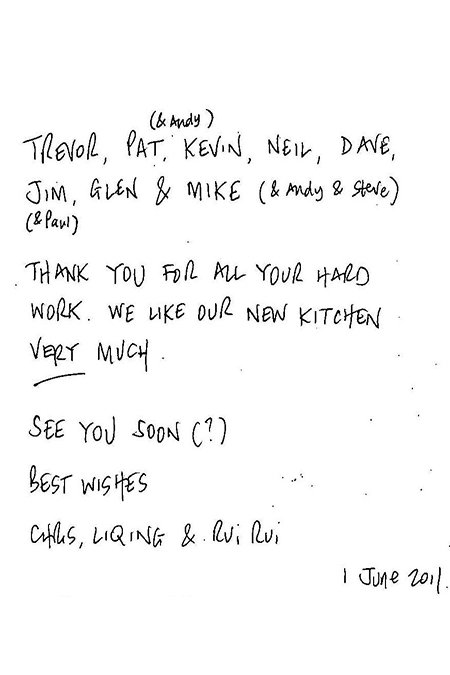 (& Andy)
TREVOR, PAT, KEVIN, NEIL, DAVE,
JIM, GLEN & MIKE (& Andy & Steve)
(& Paul)
THANK YOU FOR ALL YOUR HARD
WORK. WE LIKE OUR NEW KITCHEN
VERY MUCH.
SEE YOU SOON (?)
BEST WISHES
CHRIS, LIQING & Rui Rui
1 June 2011.